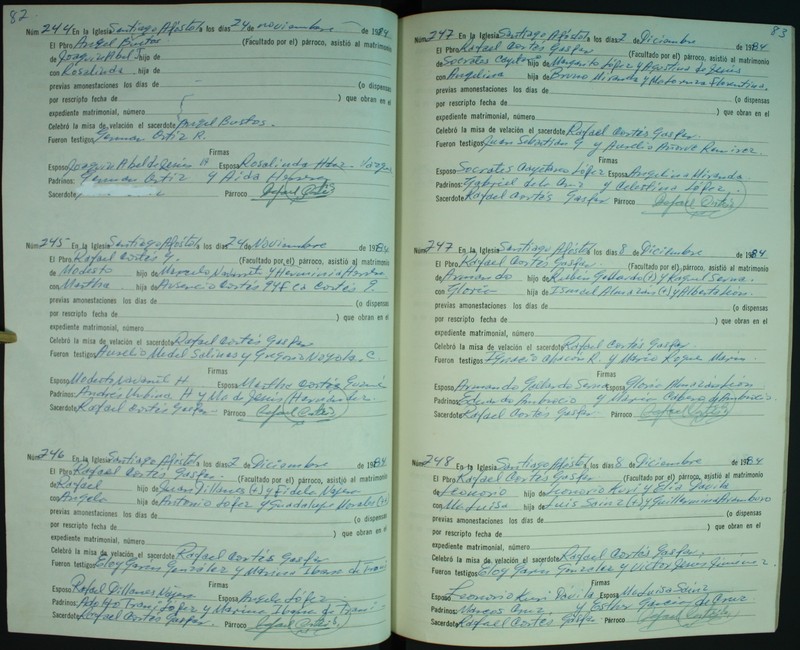 82
Núm 244 En la Iglesia Santiago Apóstol a los días 24 de noviembre de 1984.
El Pbro. Angel Bustos (Facultado por el) párroco, asistió al matrimonio
de Joaquin Abel hijo de
con Rosalinda hija de
previas amonestaciones los días de (o dispensas
por rescripto fecha de ) que obran en el
expediente matrimonial, número
Celebró la misa de velación el sacerdote Angel Bustos.
Fueron testigos German Ortiz R.
Firmas
Esposo Joaquin Abel de Jesús H Esposa Rosalinda Hdez.
Padrinos: German Ortiz y Aida Herrera
Sacerdote Párroco Rafael Cortés
Núm 245 En la Iglesia Santiago Apóstol a los días 24 de Noviembre de 1984
El Pbro. Rafael Cortés G. (Facultado por el) párroco, asistió al matrimonio
de Modesto hijo de Marcelo Navarrete y Herminia
con Martha hija de Ausencio Cortés
previas amonestaciones los días de (o dispensas
por rescripto fecha de ) que obran en el
expediente matrimonial, número
Celebró la misa de velación el sacerdote Rafael Cortés Gaspar
Fueron testigos Aurelio Medel Salinas y Gregorio Nayola C.
Firmas
Esposo Modesto H Esposa Martha Cortés
Padrinos: Andres Urbina H y Ma de Jesús Hernández
Sacerdote Rafael Cortés Gaspar Párroco Rafael Cortés
Núm 246 En la Iglesia Santiago Apóstol a los días 2 de Diciembre de 1984
El Pbro. Rafael Cortés Gaspar (Facultado por el) párroco, asistió al matrimonio
de Rafael hijo de Juan Dillanes (+) y Fidela
con Angela hija de Antonio López y Guadalupe Morales
previas amonestaciones los días de (o dispensas
por rescripto fecha de ) que obran en el
expediente matrimonial, número
Celebró la misa de velación el sacerdote Rafael Cortés Gaspar
Fueron testigos Eloy Garcia González y Marina Ibarra de Trani
Firmas
Esposo Rafael Dillanes Esposa Angela López
Padrinos: Adolfo Trani López y Marina Ibarra de Trani
Sacerdote Rafael Cortés Gaspar. Párroco Rafael Cortés
83
Núm 247 En la Iglesia Santiago Apóstol a los días 2 de Diciembre de 1984
El Pbro. Rafael Cortés Gaspar (Facultado por el) párroco, asistió al matrimonio
de Socrates hijo de Margarito López y Agustina de Jesús
con Angelina hija de Bruno Miranda y Florentina.
previas amonestaciones los días de (o dispensas
por rescripto fecha de ) que obran en el
expediente matrimonial, número
Celebró la misa de velación el sacerdote Rafael Cortés Gaspar
Fueron testigos Juan Sebastian G. y Aurelio Ramirez.
Firmas
Esposo Socrates Cayetano López Esposa Angelina Miranda
Padrinos: Gabriel de la Cruz y Celestina López
Sacerdote Rafael Cortés Gaspar Párroco Rafael Cortés
Núm 247 En la Iglesia Santiago Apóstol a los días 8 de Diciembre de 1984
El Pbro. Rafael Cortés Gaspar. (Facultado por el) párroco, asistió al matrimonio
de Armando hijo de Rubén Gallardo (+) y Raquel Serna.
con Gloria hija de Ismael Almazán (+) y Alberta León.
previas amonestaciones los días de (o dispensas
por rescripto fecha de ) que obran en el
expediente matrimonial, número
Celebró la misa de velación el sacerdote Rafael Cortés Gaspar.
Fueron testigos Ignacio Chacón R. y Mario Roque Marin.
Firmas
Esposo Armando Gallardo Serna Esposa Gloria Almazán León
Padrinos: Eduardo Ambrocio y Maria Cabrera de Ambrocio
Sacerdote Rafael Cortés Gaspar Párroco Rafael Cortés
Núm 248 En la Iglesia Santiago Apóstol a los días 8 de Diciembre de 1984
El Pbro. Rafael Cortés Gaspar (Facultado por el) párroco, asistió al matrimonio
de Leonorio hijo de Leonorio Kuri y Elia Pavila
con Ma Luisa hija de Luis Sainz (+) y Guillermina
previas amonestaciones los días de (o dispensas
por rescripto fecha de ) que obran en el
expediente matrimonial, número
Celebró la misa de velación el sacerdote Rafael Cortés Gaspar.
Fueron testigos Eloy Garcia Gonzalez y Victor Jimenez
Firmas
Esposo Leonorio Kuri Esposa Ma Luisa Sainz
Padrinos: Marcos Cruz y Esther Garcia de Cruz
Sacerdote Rafael Cortés Gaspar Párroco Rafael Cortés